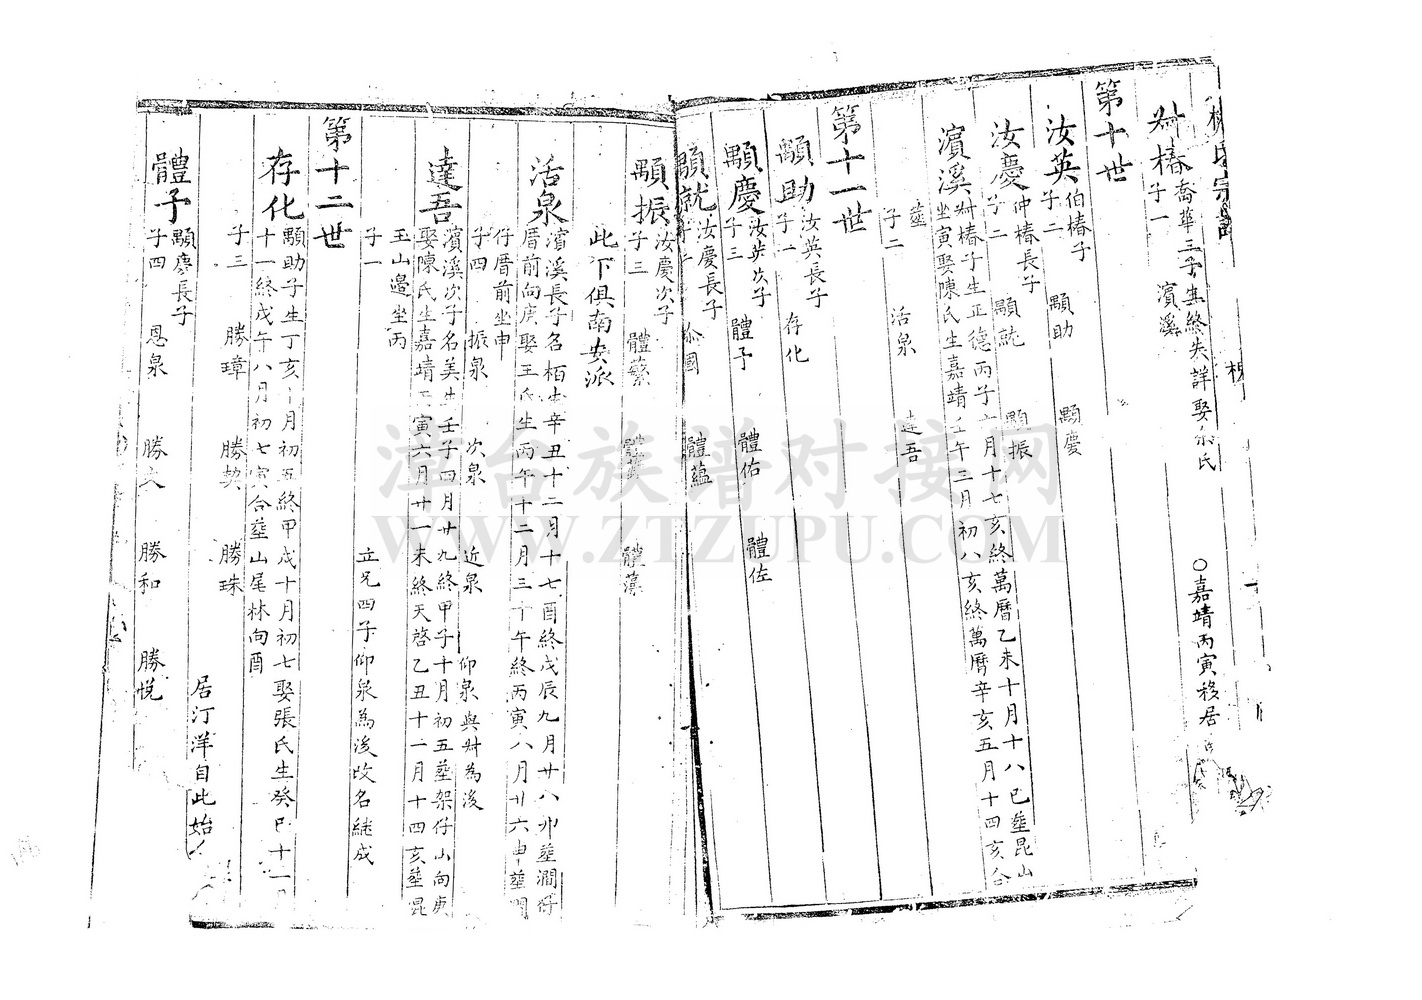 楊氏宗譜
叔椿 喬華三子生終失詳娶 氏
子一 濱溪 ○嘉靖丙寅移居
第十世
汝英 伯椿子
子二 顒助 顒慶
汝慶 仲椿長子
子二 顒就 顒振
濱溪 叔椿子生正德丙子 月十七亥終萬曆乙未十月十八巳葬昆山
坐寅娶陳氏生嘉靖壬午三月初八亥終萬曆辛亥五月十四亥合
葬
子二 活泉 達吾
第十一世
顒助 汝英長子
子一 存化
顒慶 汝英次子
子三 體予 體佑 體佐
顒就 汝慶長子
子二 國 體蘊
顒振 汝慶次子
子三 體蘩 體 體藻
此下俱南安派
活泉 濱溪長子名栢生辛丑十二月十七酉終戊辰九月廿八卯葬澗仔
厝前向庚娶王氏生丙午十二月三十午終丙寅八月廿六申葬澗
仔厝前坐申
子四 振泉 次泉 近泉 仰泉與叔為後
達吾 濱溪次子名美生壬子四月廿九終甲子十月初五葬架仔山向庚
娶陳氏生嘉靖 寅六月廿一未終天啓乙丑十一月十四亥葬昆
玉山邊坐丙
子一 立兄四子仰泉為後改名継成
第十二世
存化 顒助子生丁亥十月初五終甲戌十月初七娶張氏生癸巳十一月
十一終戊午八月初七寅合葬山尾林向酉
子三 勝璋 勝契 勝珠
居汀洋自此始
體予 顒慶長子
子四 恩泉 勝之 勝和 勝悅